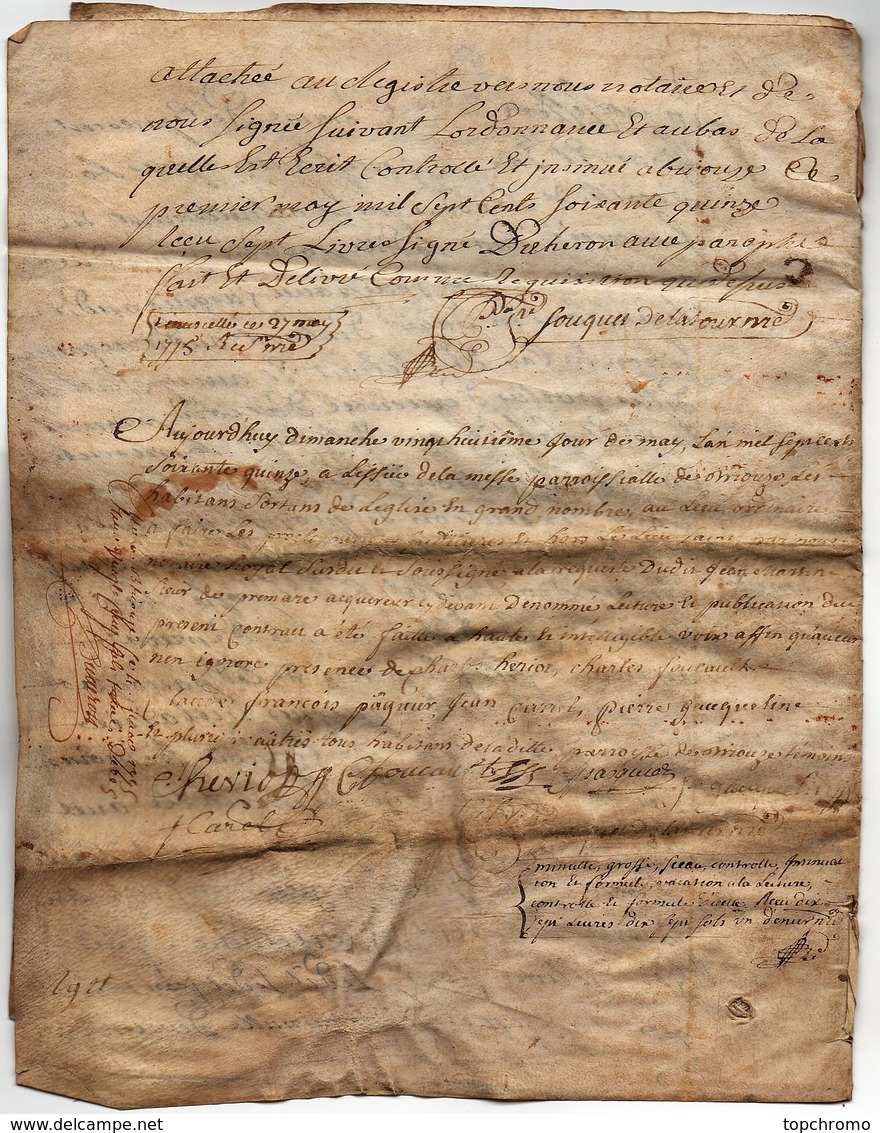 attachée au Registre vers nous notaire Et de
nous Signée Suivant Lordonnance Et au bas de La
quelle Est Ecrit Controllé Et jnsinué a briouze Le
premier may mil Sept Cents Soixante quinze
Reçeu Sept Livres Signé Duheron avec paraphe
fait Et Delivré Comme Requisition
fouquet Delatour nre
ce 27 may
1775
Aujourdhuy dimanche vingt huitiême Jour de may, Lan mil sept cents
Soixante quinze, a Lissüe de la messe parroissialle de Briouze, Les
habitans Sortans de Leglise En grand nombre, au Lieu ordinaire
a faire Les proclamations et hors Le Lieu Saint, par nous
notaire Royal Susdit Soussigné a la requeste Dudit Jean Martin
Sieur de premare acquereur cy devant Denommé Lecture Et publication du
present Contract a été faitte a haute Et intelligible voix affin qu'aucun
nen ignore presence de Charles heriot, charles foucault
françois pâquier Jean Carrel, pierre Jacqueline
Et plusieurs autres tous habitans de la ditte parroisse de Briouze témoins
heriot C foucault pasquier
Jacqueline
J Carel
minutte, grosse, sceau, controlle, Jnsinuat
ion Et formule, vacation a la Lecture,
controlle Et formule dicelle Receu dix
Sept Livres dix Sept sols un denier nre
topchromo